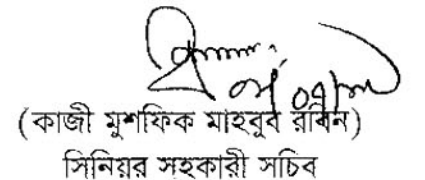 (কাজী মুশফিক মাহবুব রবিন)
সিনিয়র সহকারী সচিব